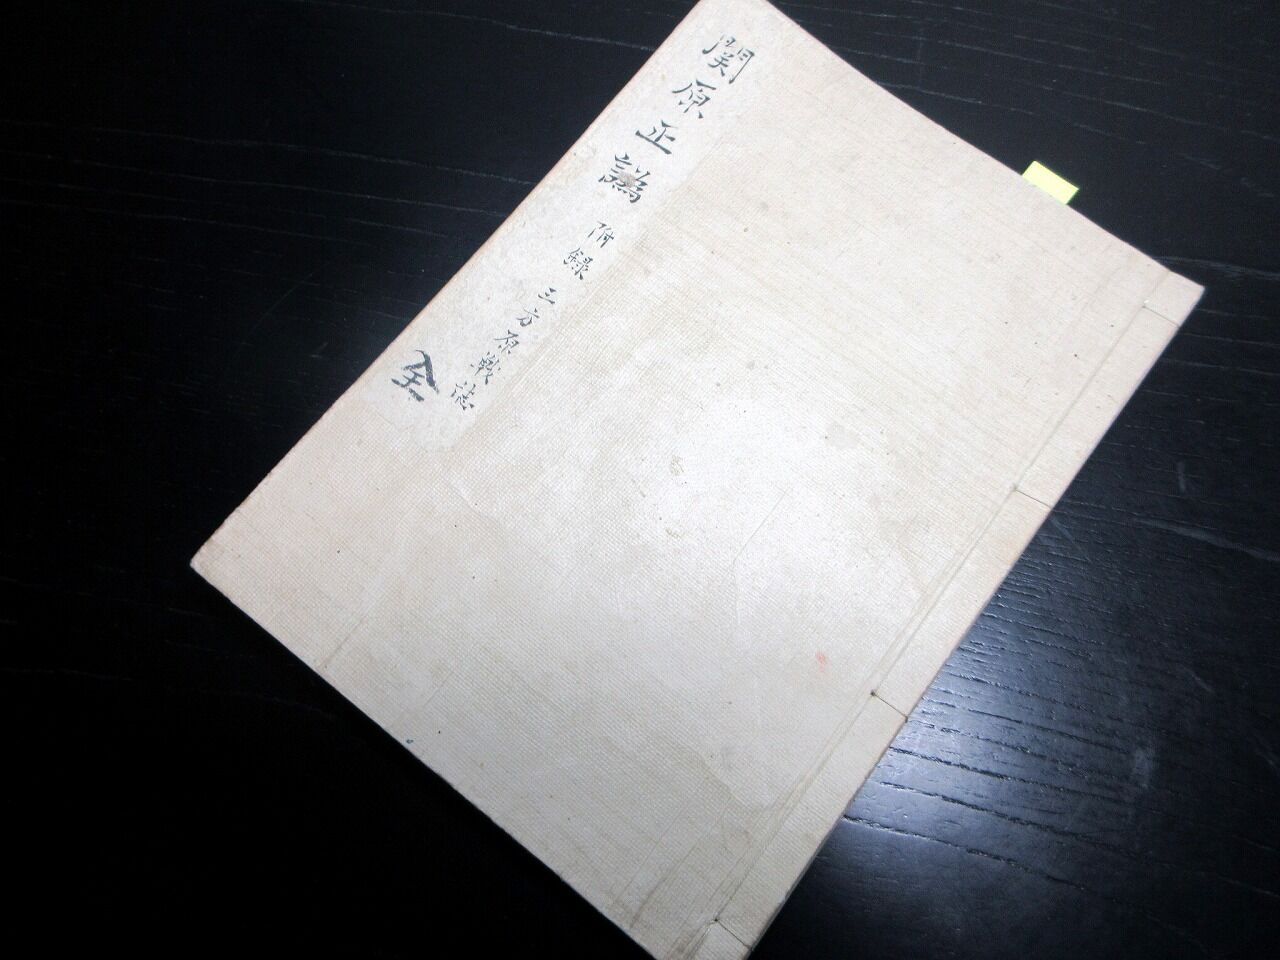 関原正譌
附録 三方原戦誌
全